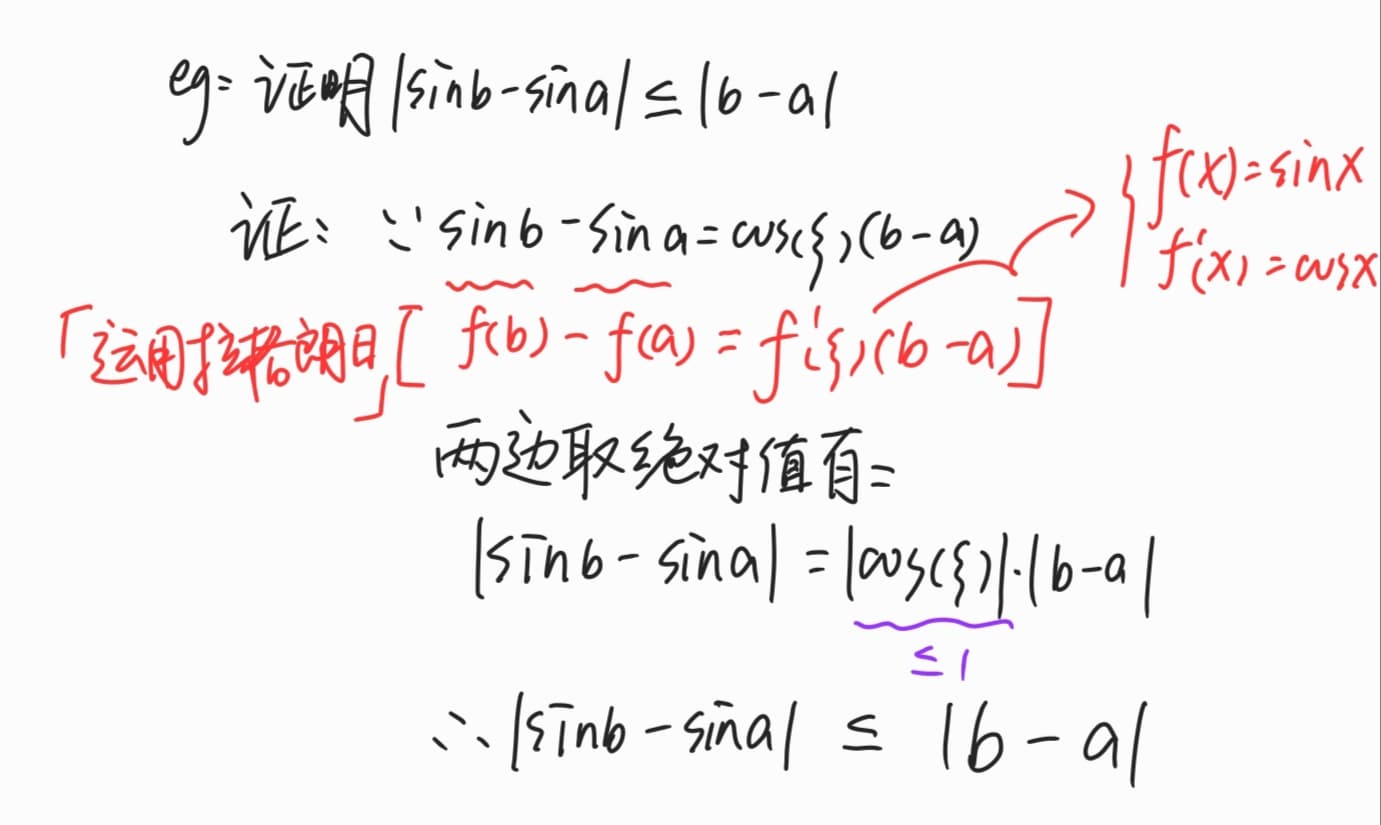 eg: 证明|sinb-sina|≤|b-a|
证: ∵ sinb-sina=cos(ξ)(b-a)
{ f(x)=sinx
f'(x)=cosx
「运用拉格朗日」[f(b)-f(a)=f'(ξ)(b-a)]
两边取绝对值有:
|sinb-sina|=|cos(ξ)|·|b-a|
≤1
∴|sinb-sina| ≤ |b-a|